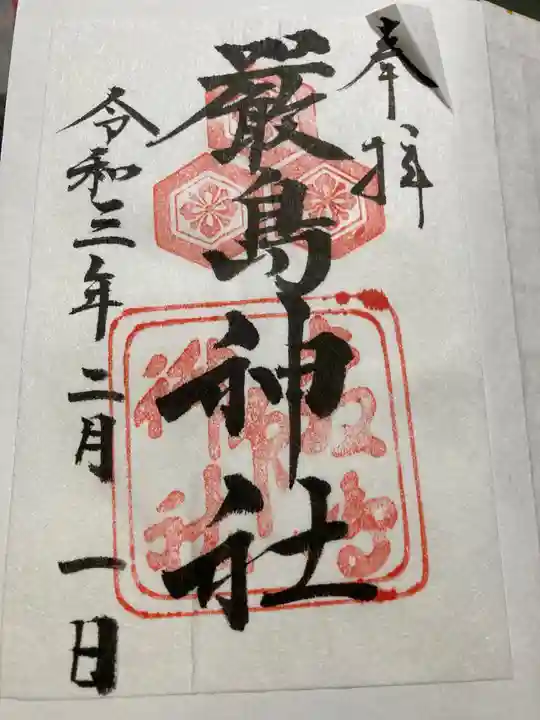 奉拝
厳島神社
令和三年 二月 一日